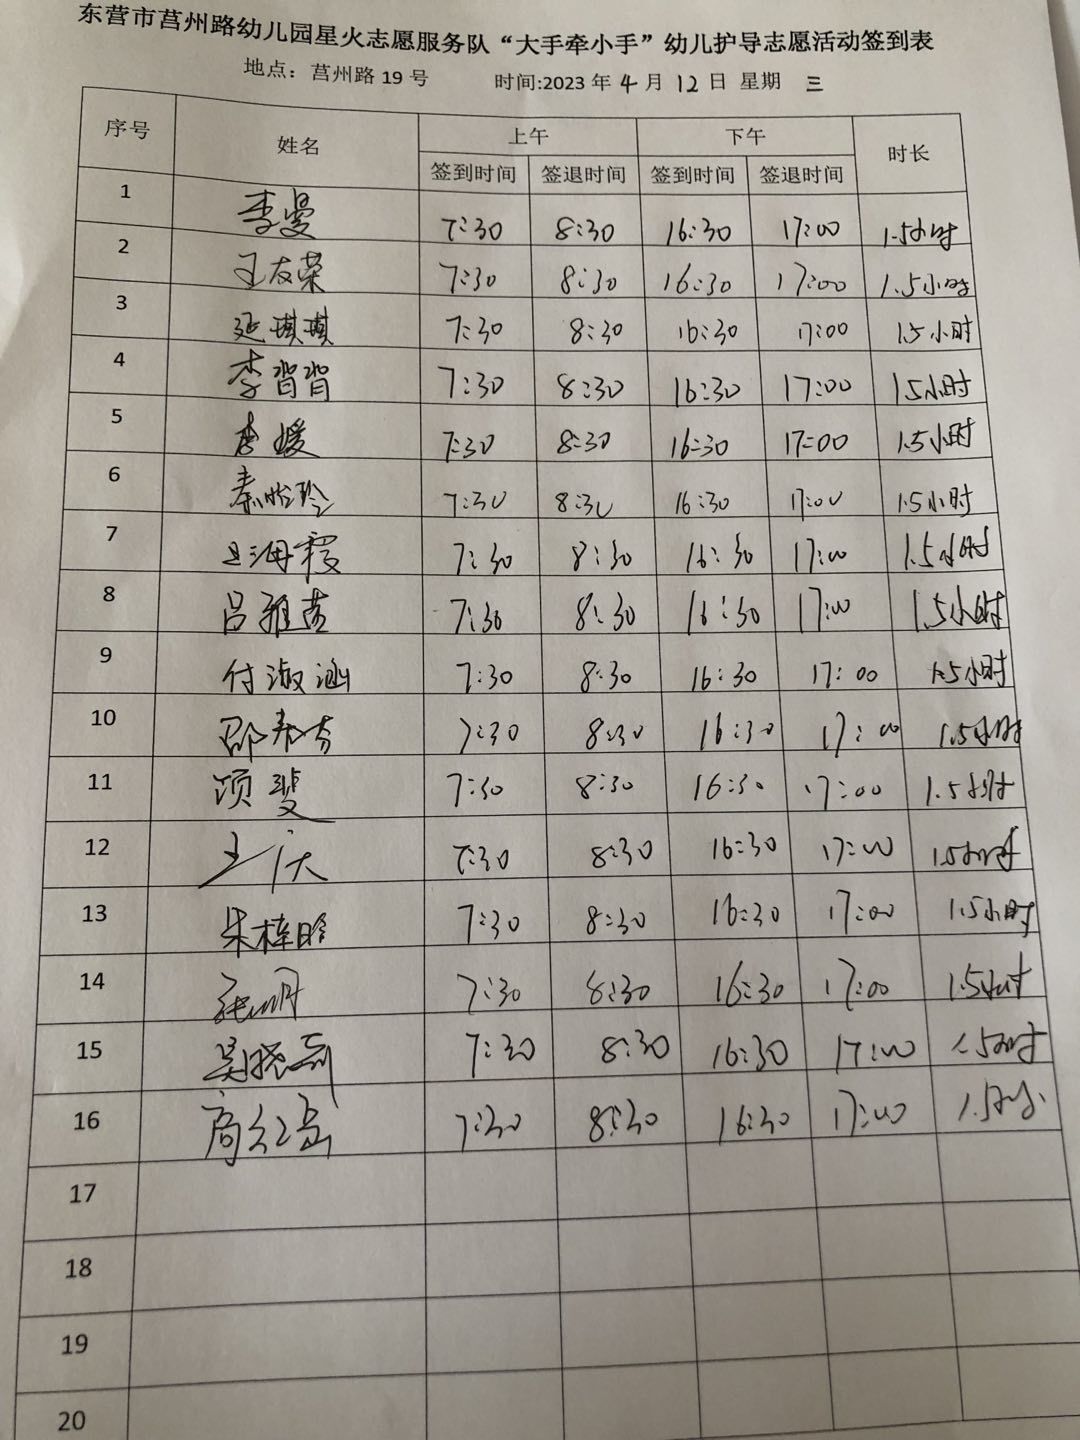 东营市莒州路幼儿园星火志愿服务队“大手牵小手”幼儿护导志愿活动签到表
地点：莒州路 19 号 时间:2023 年 4 月 12 日 星期 三
序号 姓名 上午 下午 时长
签到时间 签退时间 签到时间 签退时间
1 李曼 7:30 8:30 16:30 17:00 1.5小时
2 王友荣 7:30 8:30 16:30 17:00 1.5小时
3 延琪琪 7:30 8:30 16:30 17:00 1.5小时
4 李背背 7:30 8:30 16:30 17:00 1.5小时
5 李媛 7:30 8:30 16:30 17:00 1.5小时
6 7:30 8:30 16:30 17:00 1.5小时
7 王海霞 7:30 8:30 16:30 17:00 1.5小时
8 7:30 8:30 16:30 17:00 1.5小时
9 付淑涵 7:30 8:30 16:30 17:00 1.5小时
10 7:30 8:30 16:30 17:00 1.5小时
11 项斐 7:30 8:30 16:30 17:00 1.5小时
12 7:30 8:30 16:30 17:00 1.5小时
13 朱梓晗 7:30 8:30 16:30 17:00 1.5小时
14 7:30 8:30 16:30 17:00 1.5小时
15 7:30 8:30 16:30 17:00 1.5小时
16 7:30 8:30 16:30 17:00 1.5小时
17
18
19
20